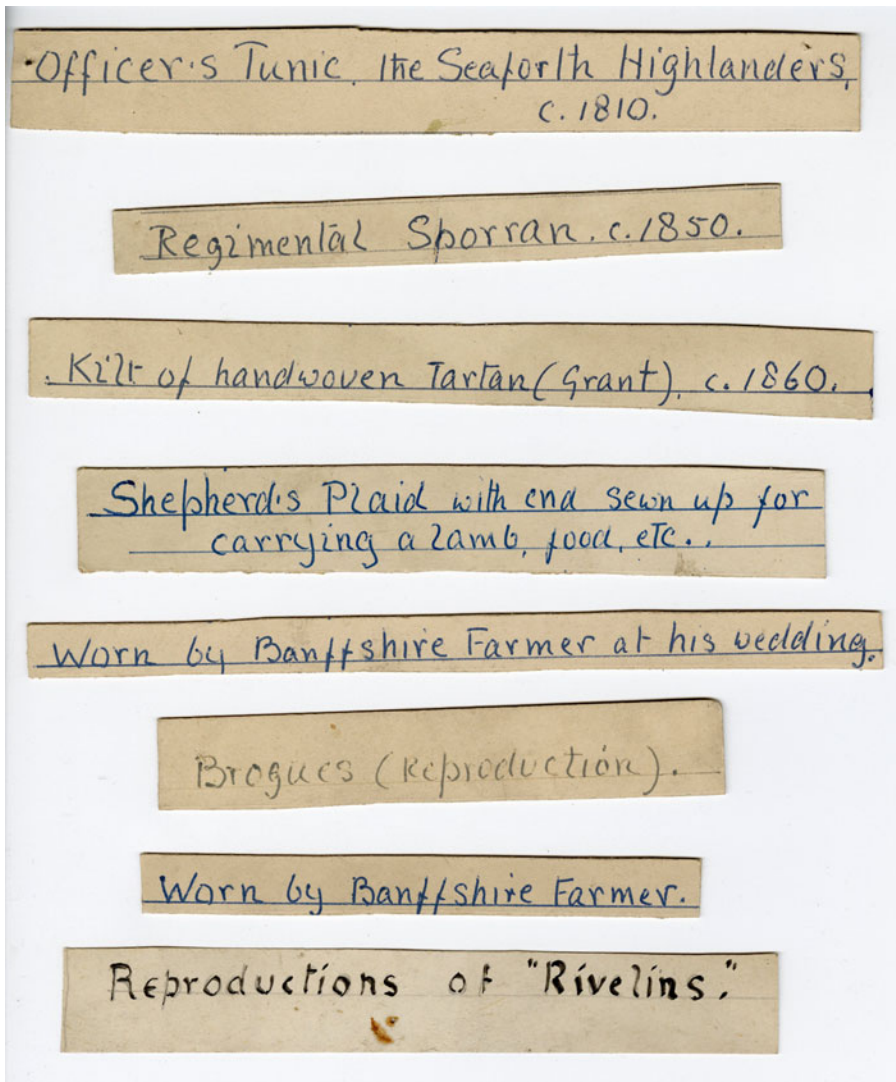 Officer's Tunic, the Seaforth Highlanders,
c. 1810.
Regimental Sporran. c. 1850.
Kilt of handwoven Tartan (Grant), c. 1860.
Shepherd's Plaid with end sewn up for
carrying a lamb, food, etc..
Worn by Banffshire Farmer at his wedding.
Brogues (Reproduction).
Worn by Banffshire Farmer.
Reproductions of "Rivelins."